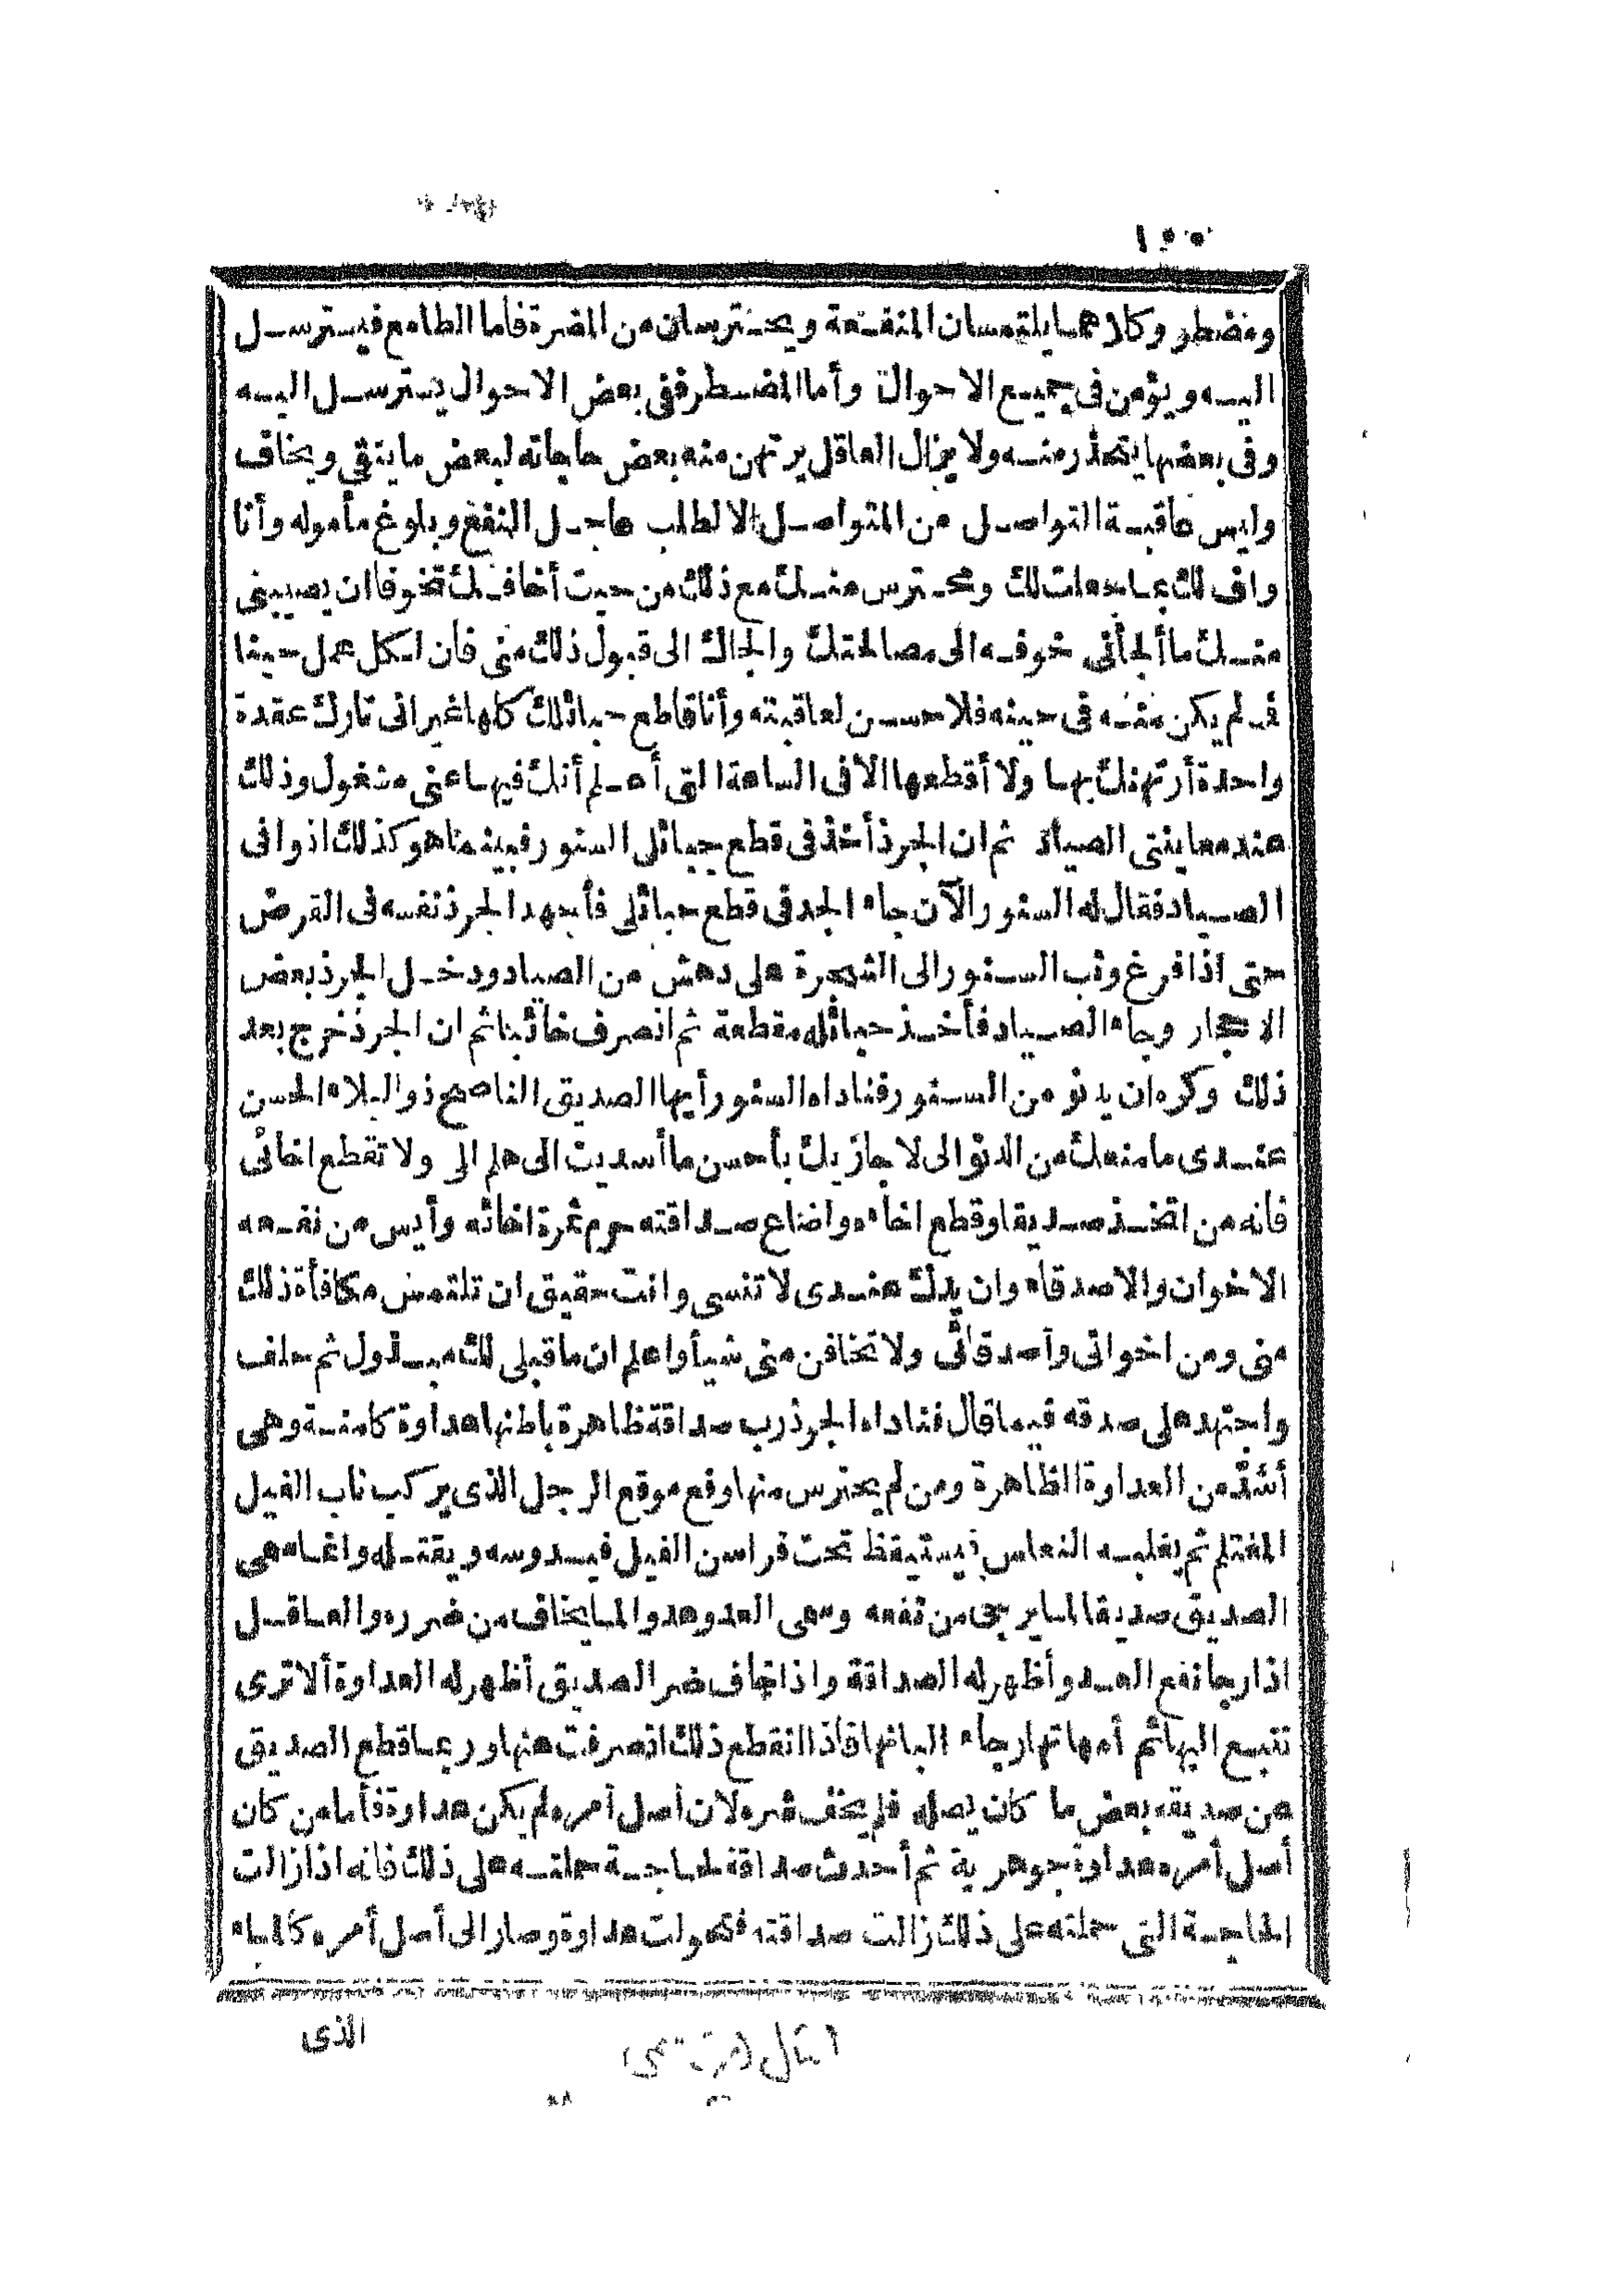 ١٥٥
ومضطر وكلاهما يلتمسان المنفعة ويحترسان من المضرة فاما الطامع فيسترسل
اليه ويؤمن فى جميع الاحوال وأما المضطر ففى بعض الاحوال يسترسل اليه
وفى بعضها يتحذر منه ولا يزال العاقل يرتهن منه بعض حاجاته لبعض ما يتقي ويخاف
وليس عاقبة التواصل من المتواصل الا لطلب عاجل النفع وبلوغ مأموله وأنا
واف لك بما جعلت لك ومحترس منك مع ذلك من حيث أخافك تخوفا ان يصيبنى
منك ما ألجأنى خوفه الى مصالحتك والجاك الى قبول ذلك منى فان لكل عمل حينا
فما لم يكن منه فى حينه فلا حسن لعاقبته وأنا قاطع حبائلك كلها غير انى تارك عقدة
واحدة أرتهنك بها ولا أقطعها الا فى الساعة التى أعلم أنك فيها عنى مشغول وذلك
عند معاينتى الصياد ثم ان الجرذ أخذ فى قطع حبائل السنور فبينما هو كذلك اذ وافى
الصياد فقال له السنور الآن جاء الجد فى قطع حبائلى فأجهد الجرذ نفسه فى القرض
حتى اذا فرغ وثب السنور الى الشجرة على دهش من الصياد ودخل الجرذ بعض
الاجحار وجاء الصياد فأخذ حبائله مقطعة ثم انصرف خائبا ثم ان الجرذ خرج بعد
ذلك وكره ان يدنو من السنور فناداه السنور أيها الصديق الناصح ذو البلاء الحسن
عندى ما منعك من الدنو الى لاجازيك بأحسن ما أسديت الى هلم الى ولا تقطع اخائى
فانه من اتخذ صديقا وقطع اخاءه واضاع صداقته حرم ثمرة اخائه وأيس من نفعه
الاخوان والاصدقاء وان يدك عندى لا تنسى وانت حقيق ان تلتمس مكافأة ذلك
منى ومن اخوانى وأصدقائى ولا تخافن منى شيأ واعلم ان ما قبلى لك مبذول ثم حلف
واجتهد على صدقه فيما قال فناداه الجرذ رب صداقة ظاهرة باطنها عداوة كامنة وهى
أشد من العداوة الظاهرة ومن لم يحترس منها وقع موقع الرجل الذى يركب ناب الفيل
المغتلم ثم يغلبه النعاس فيستيقظ تحت فراسن الفيل فيدوسه ويقتله وانما سمى
الصديق صديقا لما يرجى من نفعه وسمى العدو عدوا لما يخاف من ضرره والعاقل
اذا رجا نفع العدو أظهر له الصداقة واذا خاف ضر الصديق أظهر له العداوة ألا ترى
تتبع البهائم أمهاتها رجاء البانها فاذا انقطع ذلك انصرفت عنها وربما قطع الصديق
عن صديقه بعض ما كان يصله فلم يخف شره لان أصل أمره لم يكن عداوة فأما من كان
أصل أمره عداوة جوهرية ثم أحدث صداقة لحاجة حملته على ذلك فانه اذا زالت
الحاجة التى حملته على ذلك زالت صداقته فتحولت عداوة وصار الى أصل أمره كالماء
الذى